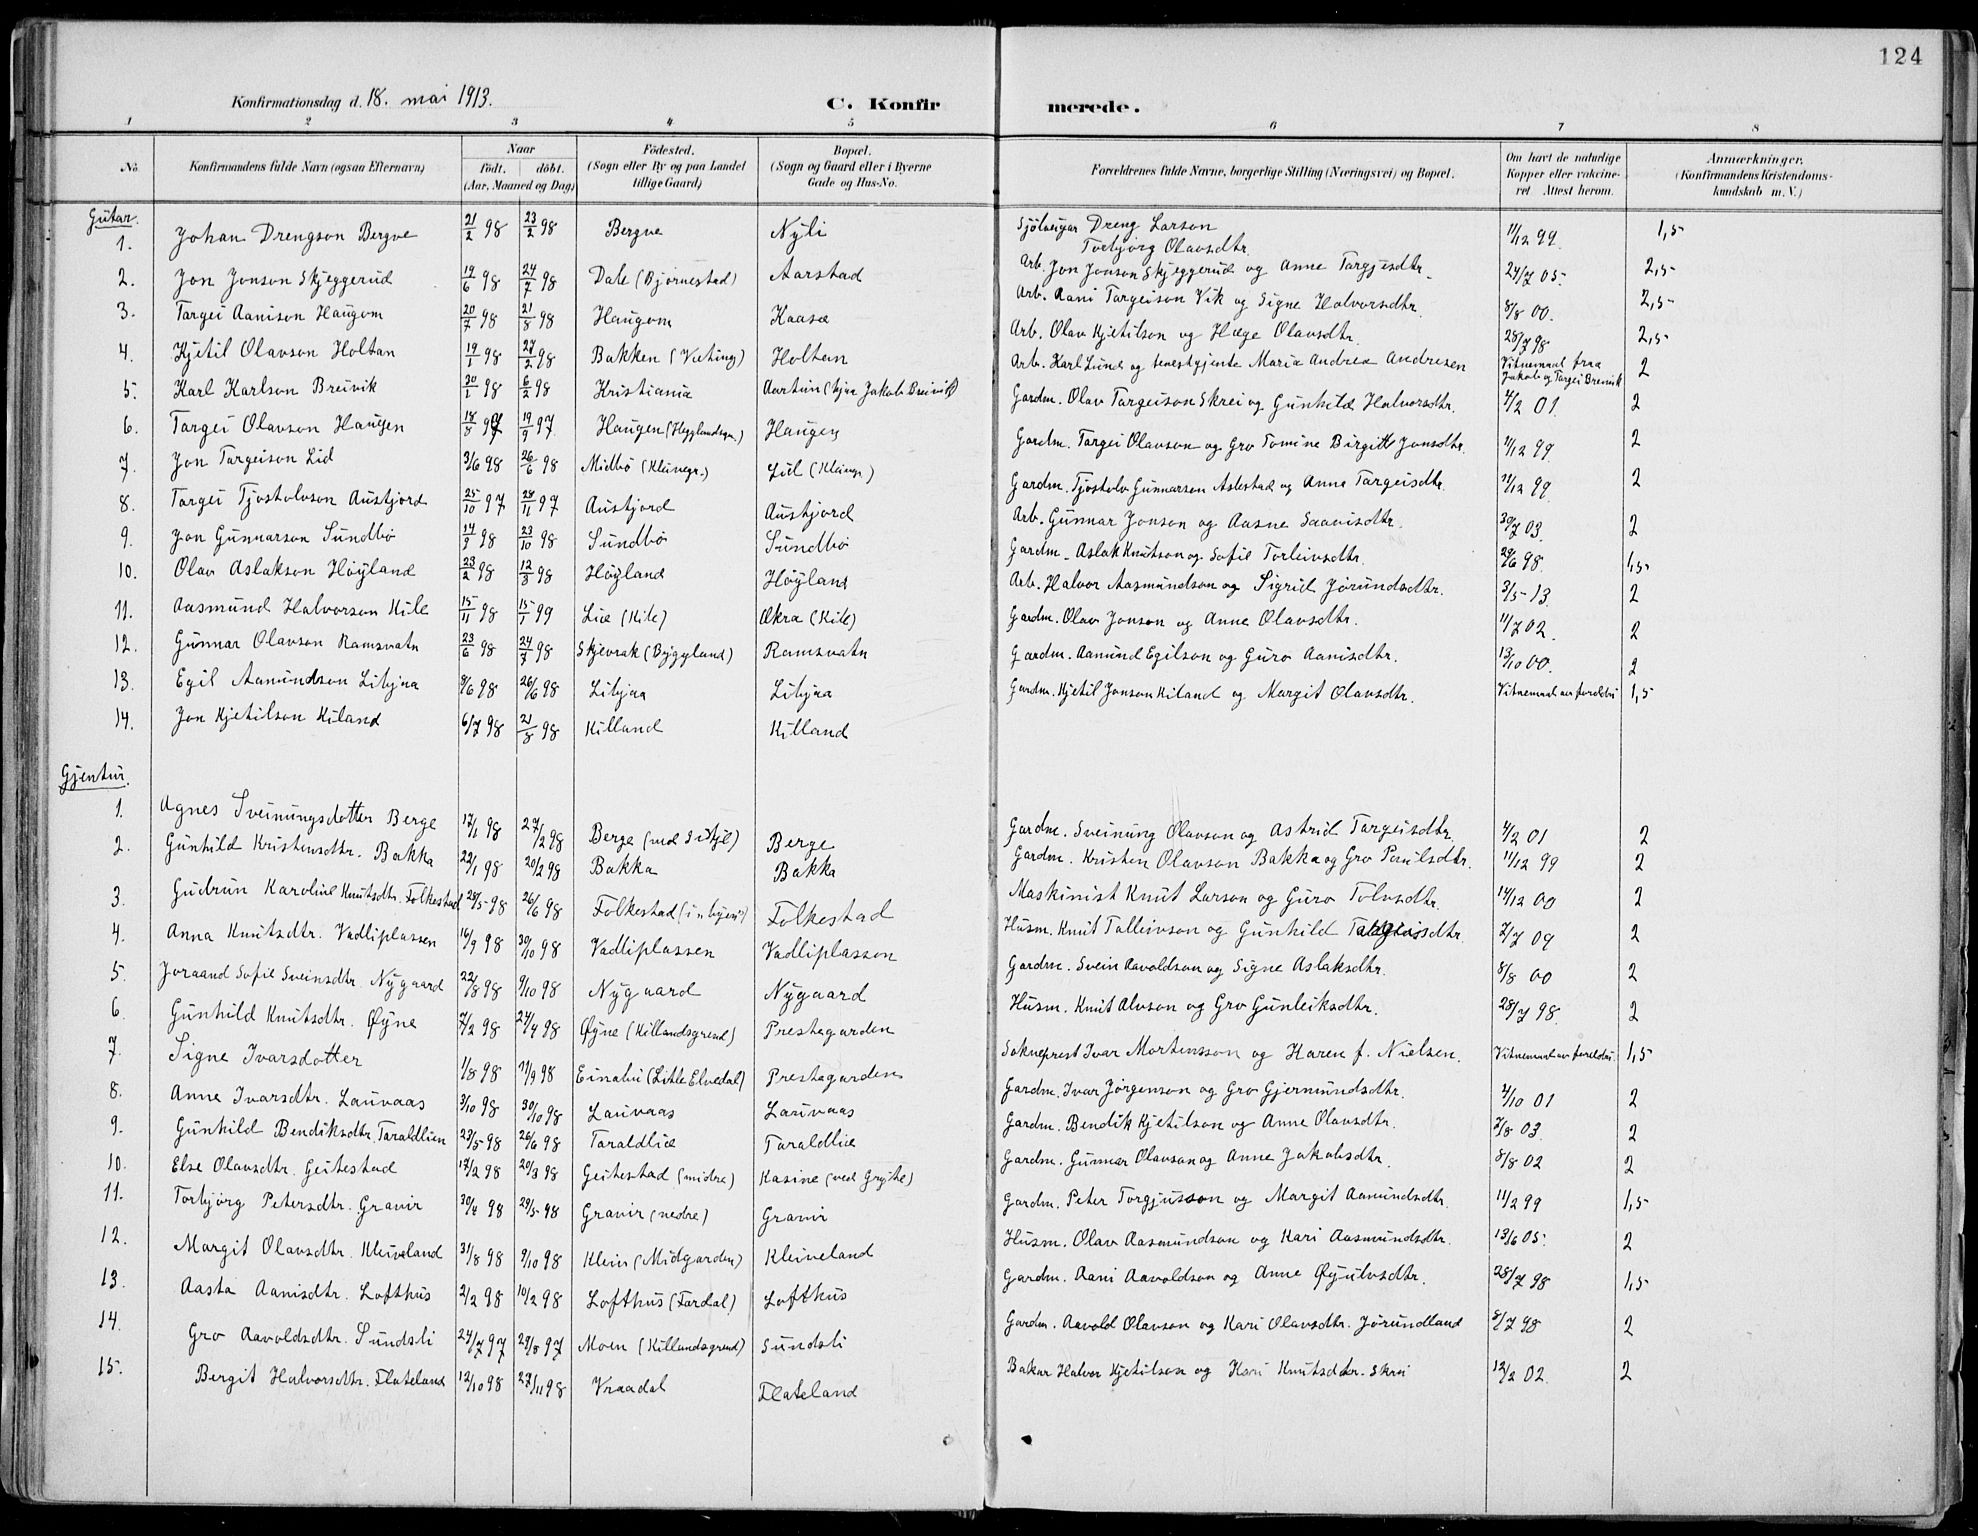 124
Konfirmationsdag d. 18. mai 1913.
C. Konfirmerede.
1 2 3 4 5 6 7 8
No. Konfirmandens fulde Navn (ogsaa Efternavn) Naar födt. döbt. (Aar, Maaned og Dag) Födested. (Sogn eller By og paa Landet tillige Gaard) Bopæl. (Sogn og Gaard eller i Byerne Gade og Hus-No. Forældrenes fulde Navne, borgerlige Stilling (Næringsvei) og Bopæl. Om havt de naturlige Kopper eller vakcineret. Attest herom. Anmærkninger. (Konfirmandens Kristendomskundskab m. V.)
Gutar.
1. Johan Drengson Bergve 21/2 98 23/2 98 Bergve Nyli Sjölveigar Dreng Larson Torbjörg Olavsdtr. 11/12 99. 1,5
2. Jon Jonson Skjeggerud 19/6 98 24/7 98 Dale (Bjørnestad) Aarstad Arb. Jon Jonson Skjeggerud og Anne Targjesdtr. 24/7 05. 2,5
3. Targei Aanison Haugom 20/7 98 21/8 98 Haugom Kaasa Arb. Aani Targeison Vik og Signe Halvorsdtr. 8/8 00. 2,5
4. Kjetil Olavson Holtan 19/1 98 27/2 98 Bakken (Væting) Holtan Arb. Olav Kjetilson og Hæge Olavsdtr. 28/7 98 2,5
5. Karl Karlson Breivik 30/1 98 6/2 98 Kristiania Aartun (hjaa Jakob Breivik) Arb. Karl Lund og tenestgjente Maria Andrea Andresen Vitnemaal fraa Jakob og Targei Breivik 2
6. Targei Olavson Haugen 18/8 97 19/9 97 Haugen (Hegglandsgr.) Haugen Gardm. Olav Targeison Skrei og Gunhild Halvorsdtr. 4/2 01. 2
7. Jon Targeison Lid 3/6 98 26/6 98 Midbö (Kleivgr.) Lid (Kleivgr.) Gardm. Targei Olavson og Gro Tomine Birgitte Jonsdtr. 11/12 99 2
8. Targei Tjostolvson Austjord 25/10 97 28/11 97 Austjord Austjord Gardm. Tjostolv Gunnarson Aslestad og Anne Targeisdtr. 11/12 99. 2
9. Jon Gunnarson Sundbø 14/9 98 23/10 98 Sundbø Sundbø Arb. Gunnar Jonson og Aasne Saavisdtr. 30/7 03. 2
10. Olav Aslakson Höyland 23/2 98 12/3 98 Höyland Höyland Gardm. Aslak Knutson og Sofie Torleivsdtr. 29/6 98. 1,5
11. Aasmund Halvorson Kile 15/11 98 15/1 99 Lie (Kile) Økra (Kile) Arb. Halvor Aasmundson og Sigrid Jörundsdtr. 3/5 13. 2
12. Gunnar Olavson Ramsvatn 23/6 98 24/7 98 Skjevrak (Byggland) Ramsvatn Gardm. Olav Jonson og Anne Olavsdtr. 11/7 02. 2
13. Egil Aamundson Libjaa 9/6 98 26/6 98 Libjaa Libjaa Gardm. Aamund Egilson og Guro Aanisdtr. 13/10 00. 2
14. Jon Kjetilson Kiland 6/7 98 21/8 98 Killand Killand Gardm. Kjetil Jonson Kiland og Margit Olavsdtr. Vitnemaal av foreldri 1,5
Gjentur.
1. Agnes Sveinungsdotter Berge 17/1 98 27/2 98 Berge (ved Siljd) Berge Gardm. Sveinung Olavson og Astrid Targeisdtr. 4/2 01 2
2. Gunhild Kristensdtr. Bakka 22/1 98 20/2 98 Bakka Bakka Gardm. Kristen Olavson Bakka og Gro Paulsdtr. 11/12 99 2
3. Gudrun Karoline Knutsdtr. Folkestad 28/5 98 26/6 98 Folkestad (i "byen") Folkestad Maskinist Knut Larson og Guro Tolvsdtr. 14/12 00 2
4. Anna Knutsdtr. Vadliplassen 16/9 98 30/10 98 Vadliplassen Vadliplassen Husm. Knut Talleivson og Gunhild Targeisdtr. 2/7 09 2
5. Joraand Sofie Sveinsdtr. Nygaard 22/8 98 9/10 98 Nygaard Nygaard Gardm. Svein Aavoldson og Signe Aslaksdtr. 8/8 00 2
6. Gunhild Knutsdtr. Øyne 7/2 98 24/4 98 Øyne (Killandsgrend) Prestegarden Husm. Knut Alvson og Gro Gunleiksdtr. 28/7 98. 2
7. Signe Ivarsdotter 1/8 98 11/9 98 Einabu (Litle Elvedal) Prestegarden Sokneprest Ivar Mortensson og Karen f. Nielsen. Vitnemaal av foreldri. 1,5
8. Anne Ivarsdtr. Lauvaas 3/10 98 30/10 98 Lauvaas Lauvaas Gardm. Ivar Jørgenson og Gro Gjermundsdtr. 4/10 01 2
9. Gunhild Bendiksdtr. Taraldlien 23/5 98 26/6 98 Taraldlie Taraldlie Gardm. Bendik Kjetilson og Anne Olavsdtr. 7/8 03. 2
10. Else Olavsdtr. Geitestad 17/2 98 20/3 98 Geitestad (midre) Kasine (ved Grytte) Gardm. Gunnar Olavson og Anne Jakobsdtr. 8/8 02 2
11. Torbjörg Petersdtr. Gravir 30/4 98 29/5 98 Gravir (nedre) Gravir Gardm. Peter Torgjusson og Margit Aamundsdtr. 11/2 99 1,5
12. Margit Olavsdtr. Kleiveland 31/8 98 9/10 98 Kleiv (Midgarden) Kleiveland Husm. Olav Aasmundson og Kari Aasmundsdtr. 13/6 05. 2
13. Aasta Aanisdtr. Lofthus 2/2 98 10/2 98 Lofthus (Fardal) Lofthus Gardm. Aani Aavoldson og Anne Øyulvsdtr. 28/7 98 1,5
14. Gro Aavoldsdtr. Sundsli 24/7 97 29/8 97 Moen (Killandsgrend) Sundsli Gardm. Aavold Olavson og Kari Olavsdtr. Jörundland 8/7 98 2
15. Bergit Halvorsdtr. Flateland 12/10 98 27/11 98 Vraadal Flateland Bakar Halvor Kjetilson og Kari Knutsdtr. Skrei 12/2 02. 2